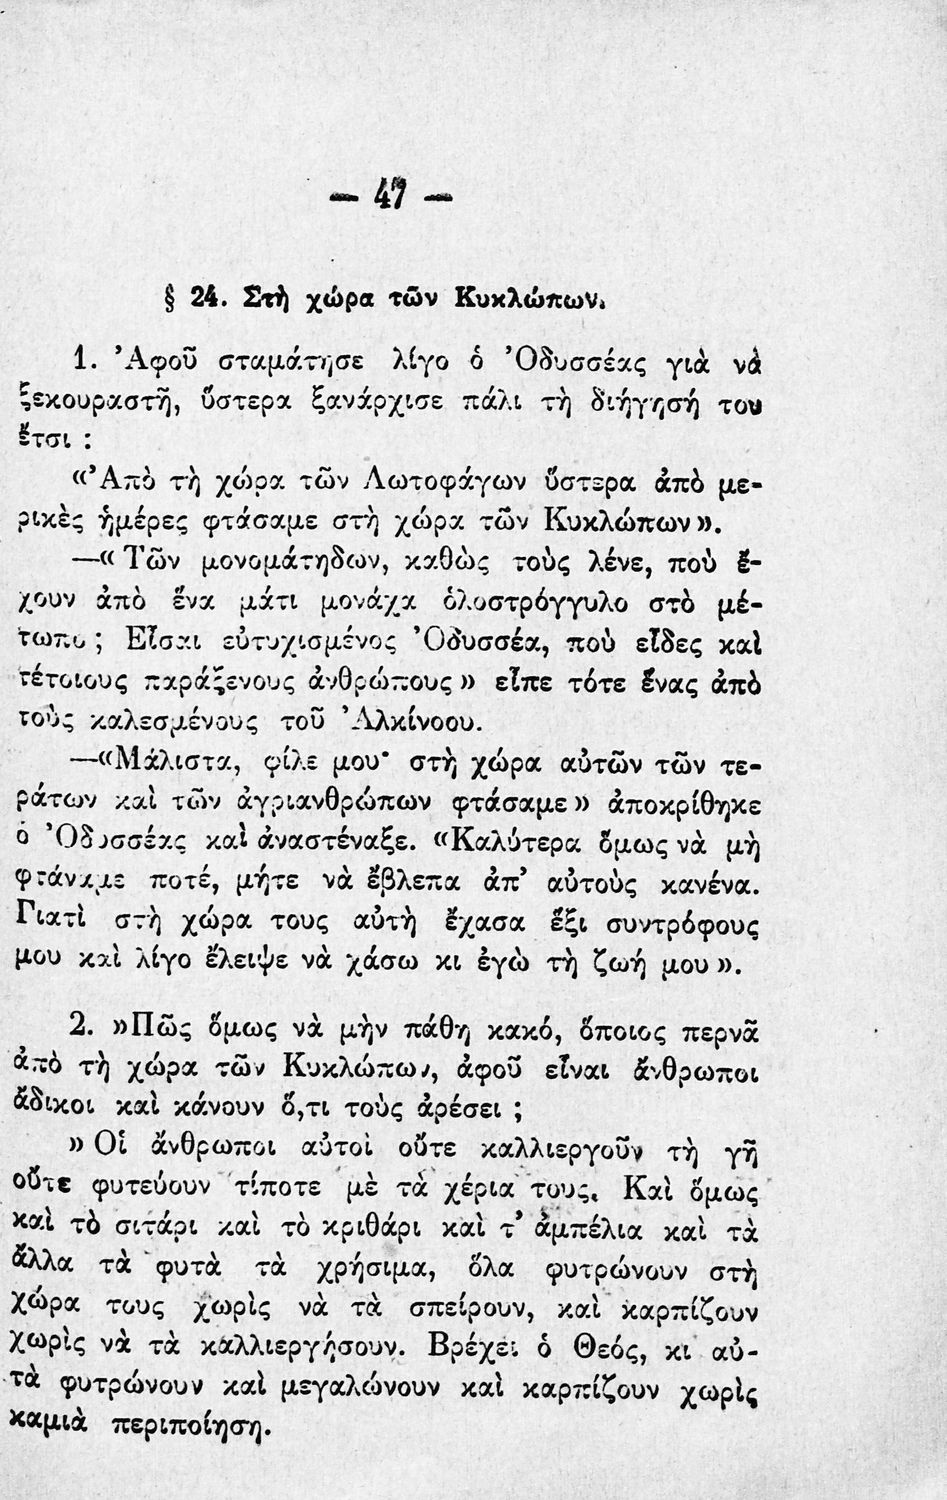 — 47 —
§ 24. Στὴ χώρα τῶν Κυκλώπων.
1. Ἀφοῦ σταμάτησε λίγο ὁ Ὀδυσσέας γιὰ νὰ
ξεκουραστῆ, ὕστερα ξανάρχισε πάλι τὴ διήγησή του
ἔτσι :
«Ἀπὸ τὴ χώρα τῶν Λωτοφάγων ὕστερα ἀπὸ με-
ρικὲς ἡμέρες φτάσαμε στὴ χώρα τῶν Κυκλώπων».
—« Τῶν μονομάτηδων, καθὼς τοὺς λένε, ποὺ ἔ-
χουν ἀπὸ ἕνα μάτι μονάχα ὁλοστρόγγυλο στὸ μέ-
τωπο ; Εἶσαι εὐτυχισμένος Ὀδυσσέα, ποὺ εἶδες καὶ
τέτοιους παράξενους ἀνθρώπους » εἶπε τότε ἕνας ἀπὸ
τοὺς καλεσμένους τοῦ Ἀλκίνοου.
—«Μάλιστα, φίλε μου· στὴ χώρα αὐτῶν τῶν τε-
ράτων καὶ τῶν ἀγριανθρώπων φτάσαμε » ἀποκρίθηκε
ὁ Ὀδυσσέας καὶ ἀναστέναξε. «Καλύτερα ὅμως νὰ μὴ
φτάναμε ποτέ, μήτε νὰ ἔβλεπα ἀπ’ αὐτοὺς κανένα.
Γιατὶ στὴ χώρα τους αὐτὴ ἔχασα ἕξι συντρόφους
μου καὶ λίγο ἔλειψε νὰ χάσω κι ἐγὼ τὴ ζωή μου ».
2. »Πῶς ὅμως νὰ μὴν πάθη κακό, ὅποιος περνᾶ
ἀπὸ τὴ χώρα τῶν Κυκλώπων, ἀφοῦ εἶναι ἄνθρωποι
ἄδικοι καὶ κάνουν ὅ,τι τοὺς ἀρέσει ;
» Οἱ ἄνθρωποι αὐτοὶ οὔτε καλλιεργοῦν τὴ γῆ
οὔτε φυτεύουν τίποτε μὲ τὰ χέρια τους. Καὶ ὅμως
καὶ τὸ σιτάρι καὶ τὸ κριθάρι καὶ τ’ ἀμπέλια καὶ τὰ
ἄλλα τὰ φυτὰ τὰ χρήσιμα, ὅλα φυτρώνουν στὴ
χώρα τους χωρὶς νὰ τὰ σπείρουν, καὶ καρπίζουν
χωρὶς νὰ τὰ καλλιεργήσουν. Βρέχει ὁ Θεός, κι αὐ-
τὰ φυτρώνουν καὶ μεγαλώνουν καὶ καρπίζουν χωρὶς
καμιὰ περιποίηση.